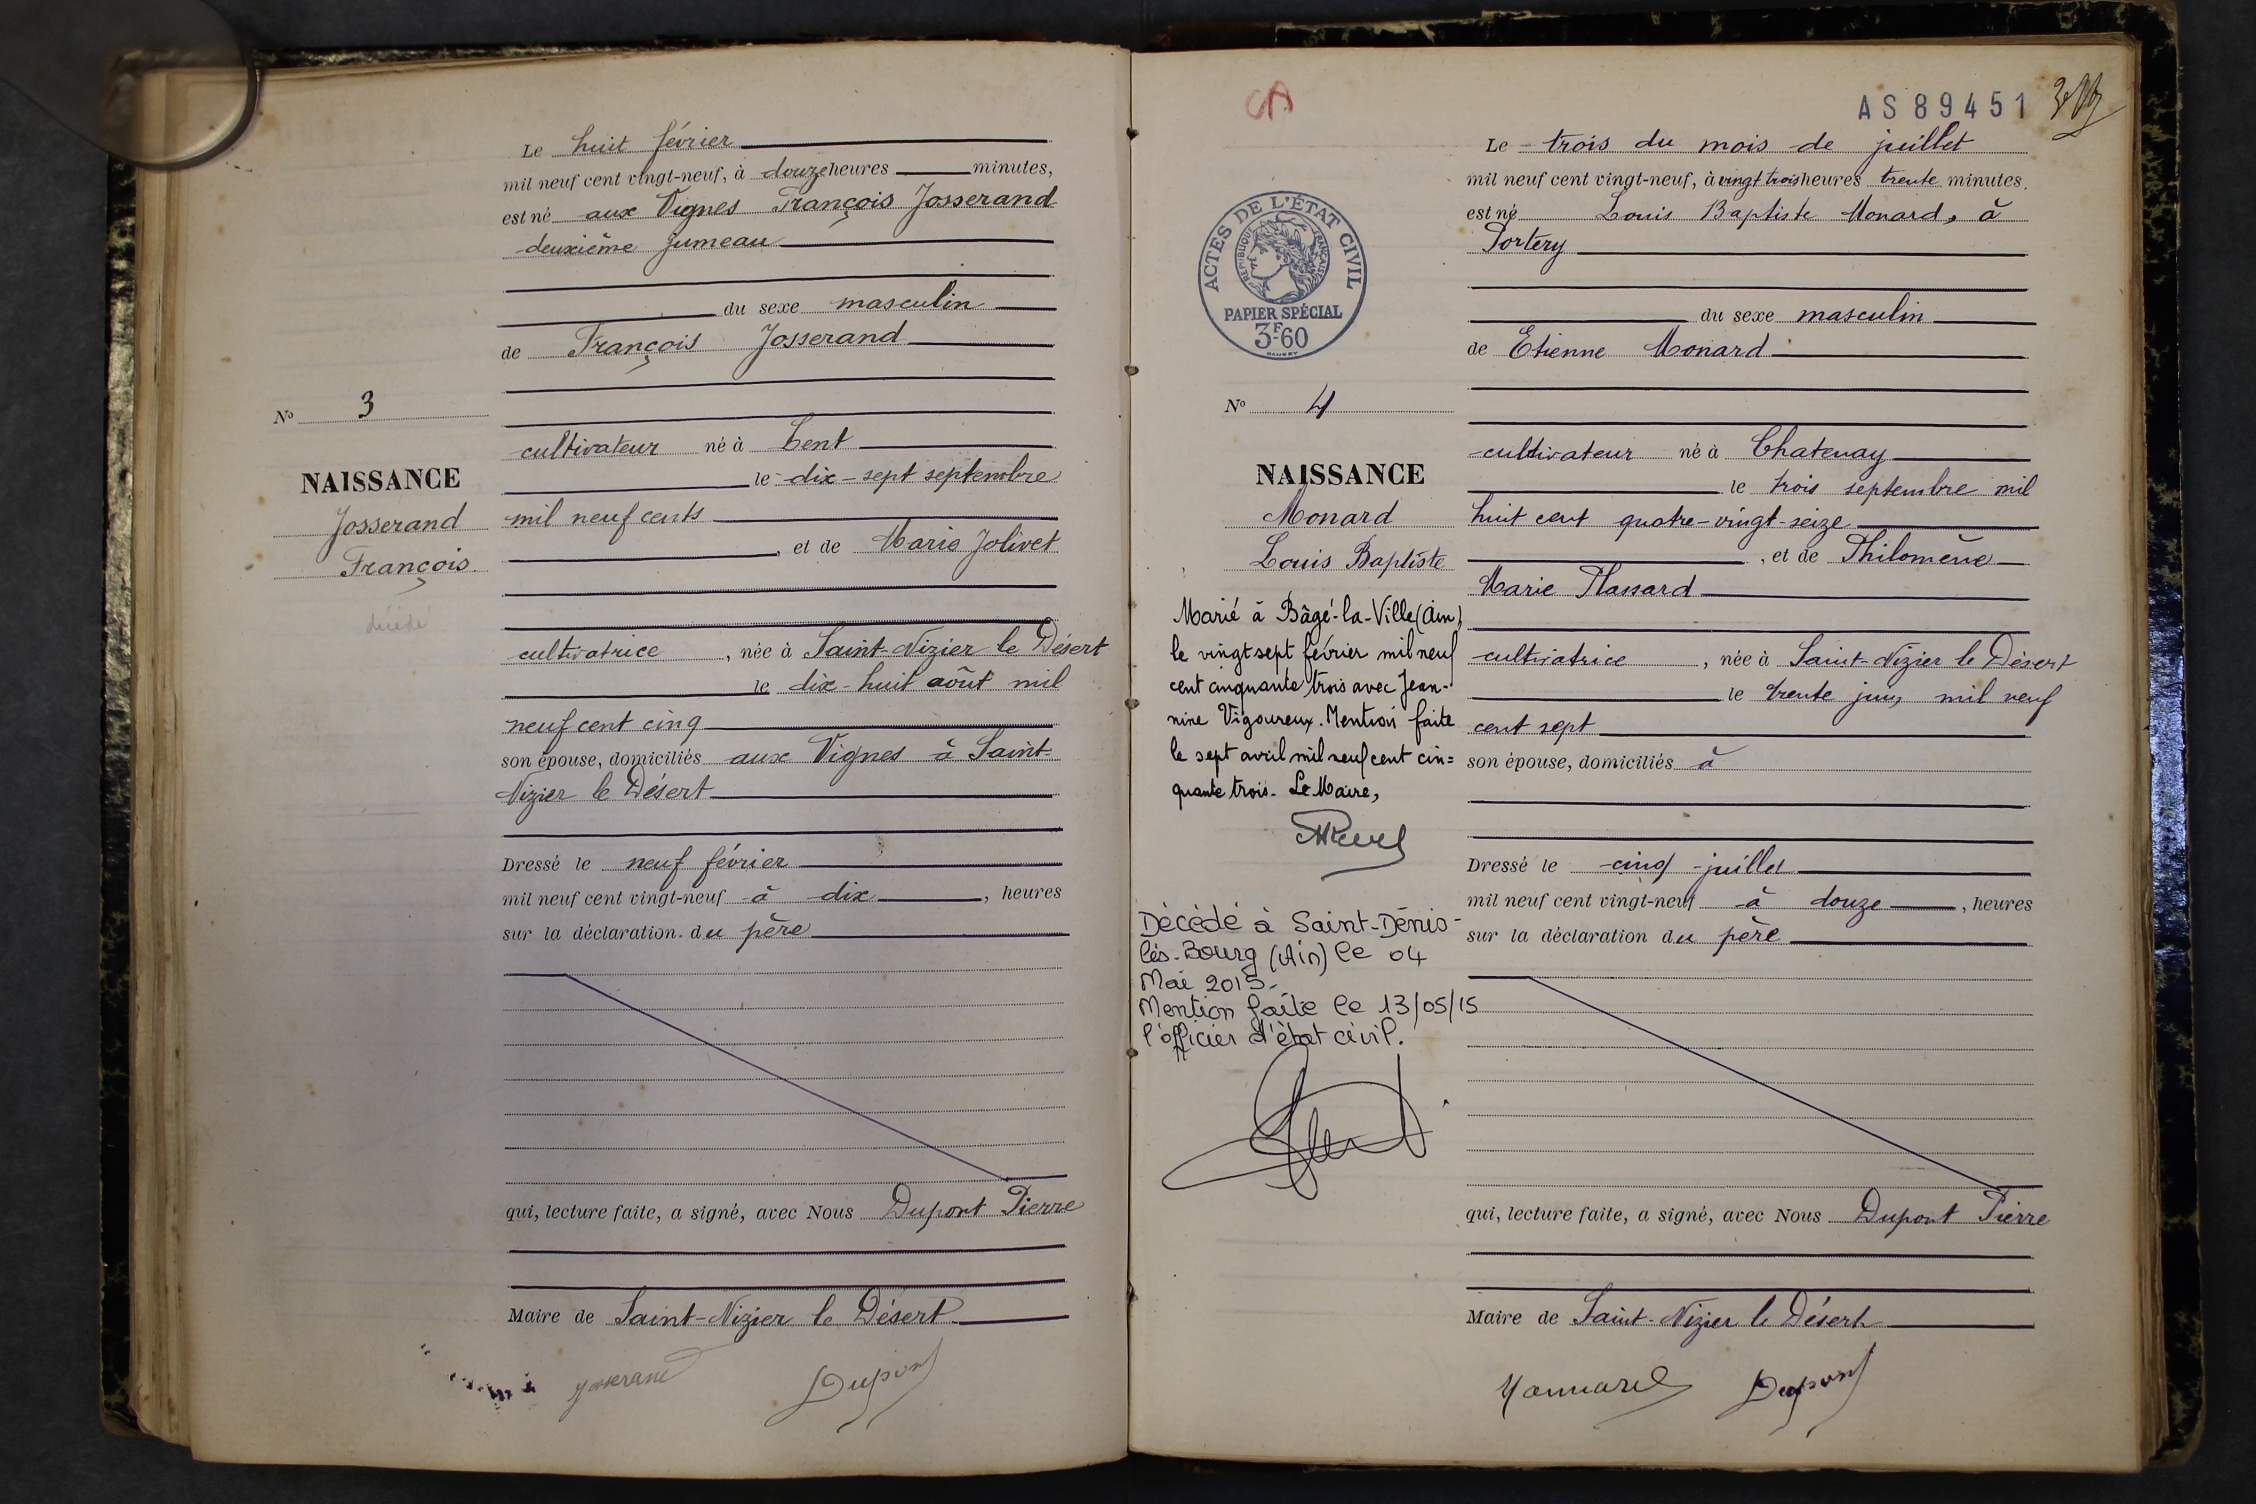 Le huit février
mil neuf cent vingt-neuf, à douze heures minutes,
est né aux Vignes François Josserand
deuxième jumeau
du sexe masculin
de François Josserand
N° 3
cultivateur né à Cent
NAISSANCE
le dix-sept septembre
Josserand
mil neuf cents
François
, et de Marie Jolivet
décédé
cultivatrice , née à Saint-Nizier le Désert
le dix-huit août mil
neuf cent cinq
son épouse, domiciliés aux Vignes à Saint-
Nizier le Désert
Dressé le neuf février
mil neuf cent vingt-neuf à dix , heures
sur la déclaration du père
qui, lecture faite, a signé, avec Nous Dupont Pierre
Maire de Saint-Nizier le Désert
Josserand Dupont
AS 89451
Le trois du mois de juillet
mil neuf cent vingt-neuf, à vingt trois heures trente minutes.
est né Louis Baptiste Monard, à
Portery
ACTES DE L'ÉTAT CIVIL
RÉPUBLIQUE FRANÇAISE
PAPIER SPÉCIAL
3F60
du sexe masculin
de Etienne Monard
N° 4
cultivateur né à Chatenay
NAISSANCE
le trois septembre mil
Monard
huit cent quatre-vingt-seize
Louis Baptiste
, et de Philomène
Marie Plassard
cultivatrice , née à Saint-Nizier le Désert
le trente juin, mil neuf
cent sept
son épouse, domiciliés à
Marié à Bâgé-la-Ville (Ain)
le vingt sept février mil neuf
cent cinquante trois avec Jean-
nine Vigoureux. Mention faite
le sept avril mil neuf cent cin=
quante trois. Le Maire,
Dressé le cinq juillet
mil neuf cent vingt-neuf à douze , heures
sur la déclaration du père
Décédé à Saint-Dénis-
lès-Bourg (Ain) le 04
Mai 2015.
Mention faite le 13/05/15
l'officier d'état civil.
qui, lecture faite, a signé, avec Nous Dupont Pierre
Maire de Saint-Nizier le Désert
Monnard Dupont